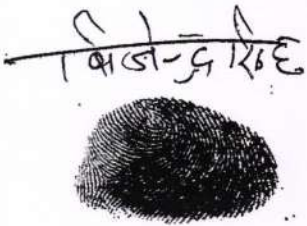 बिजेन्द्र सिंह